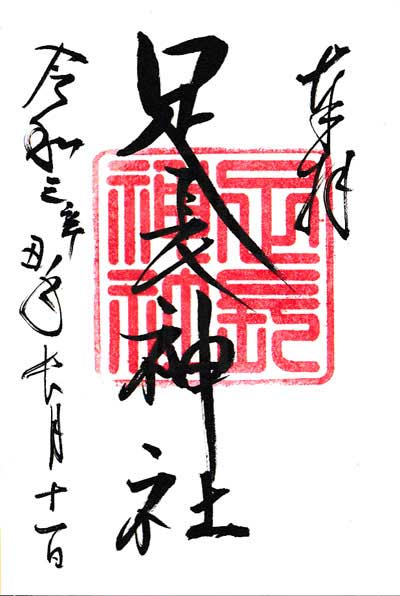 奉拝
足長神社
令和三辛丑年長月十一日
足長
神社